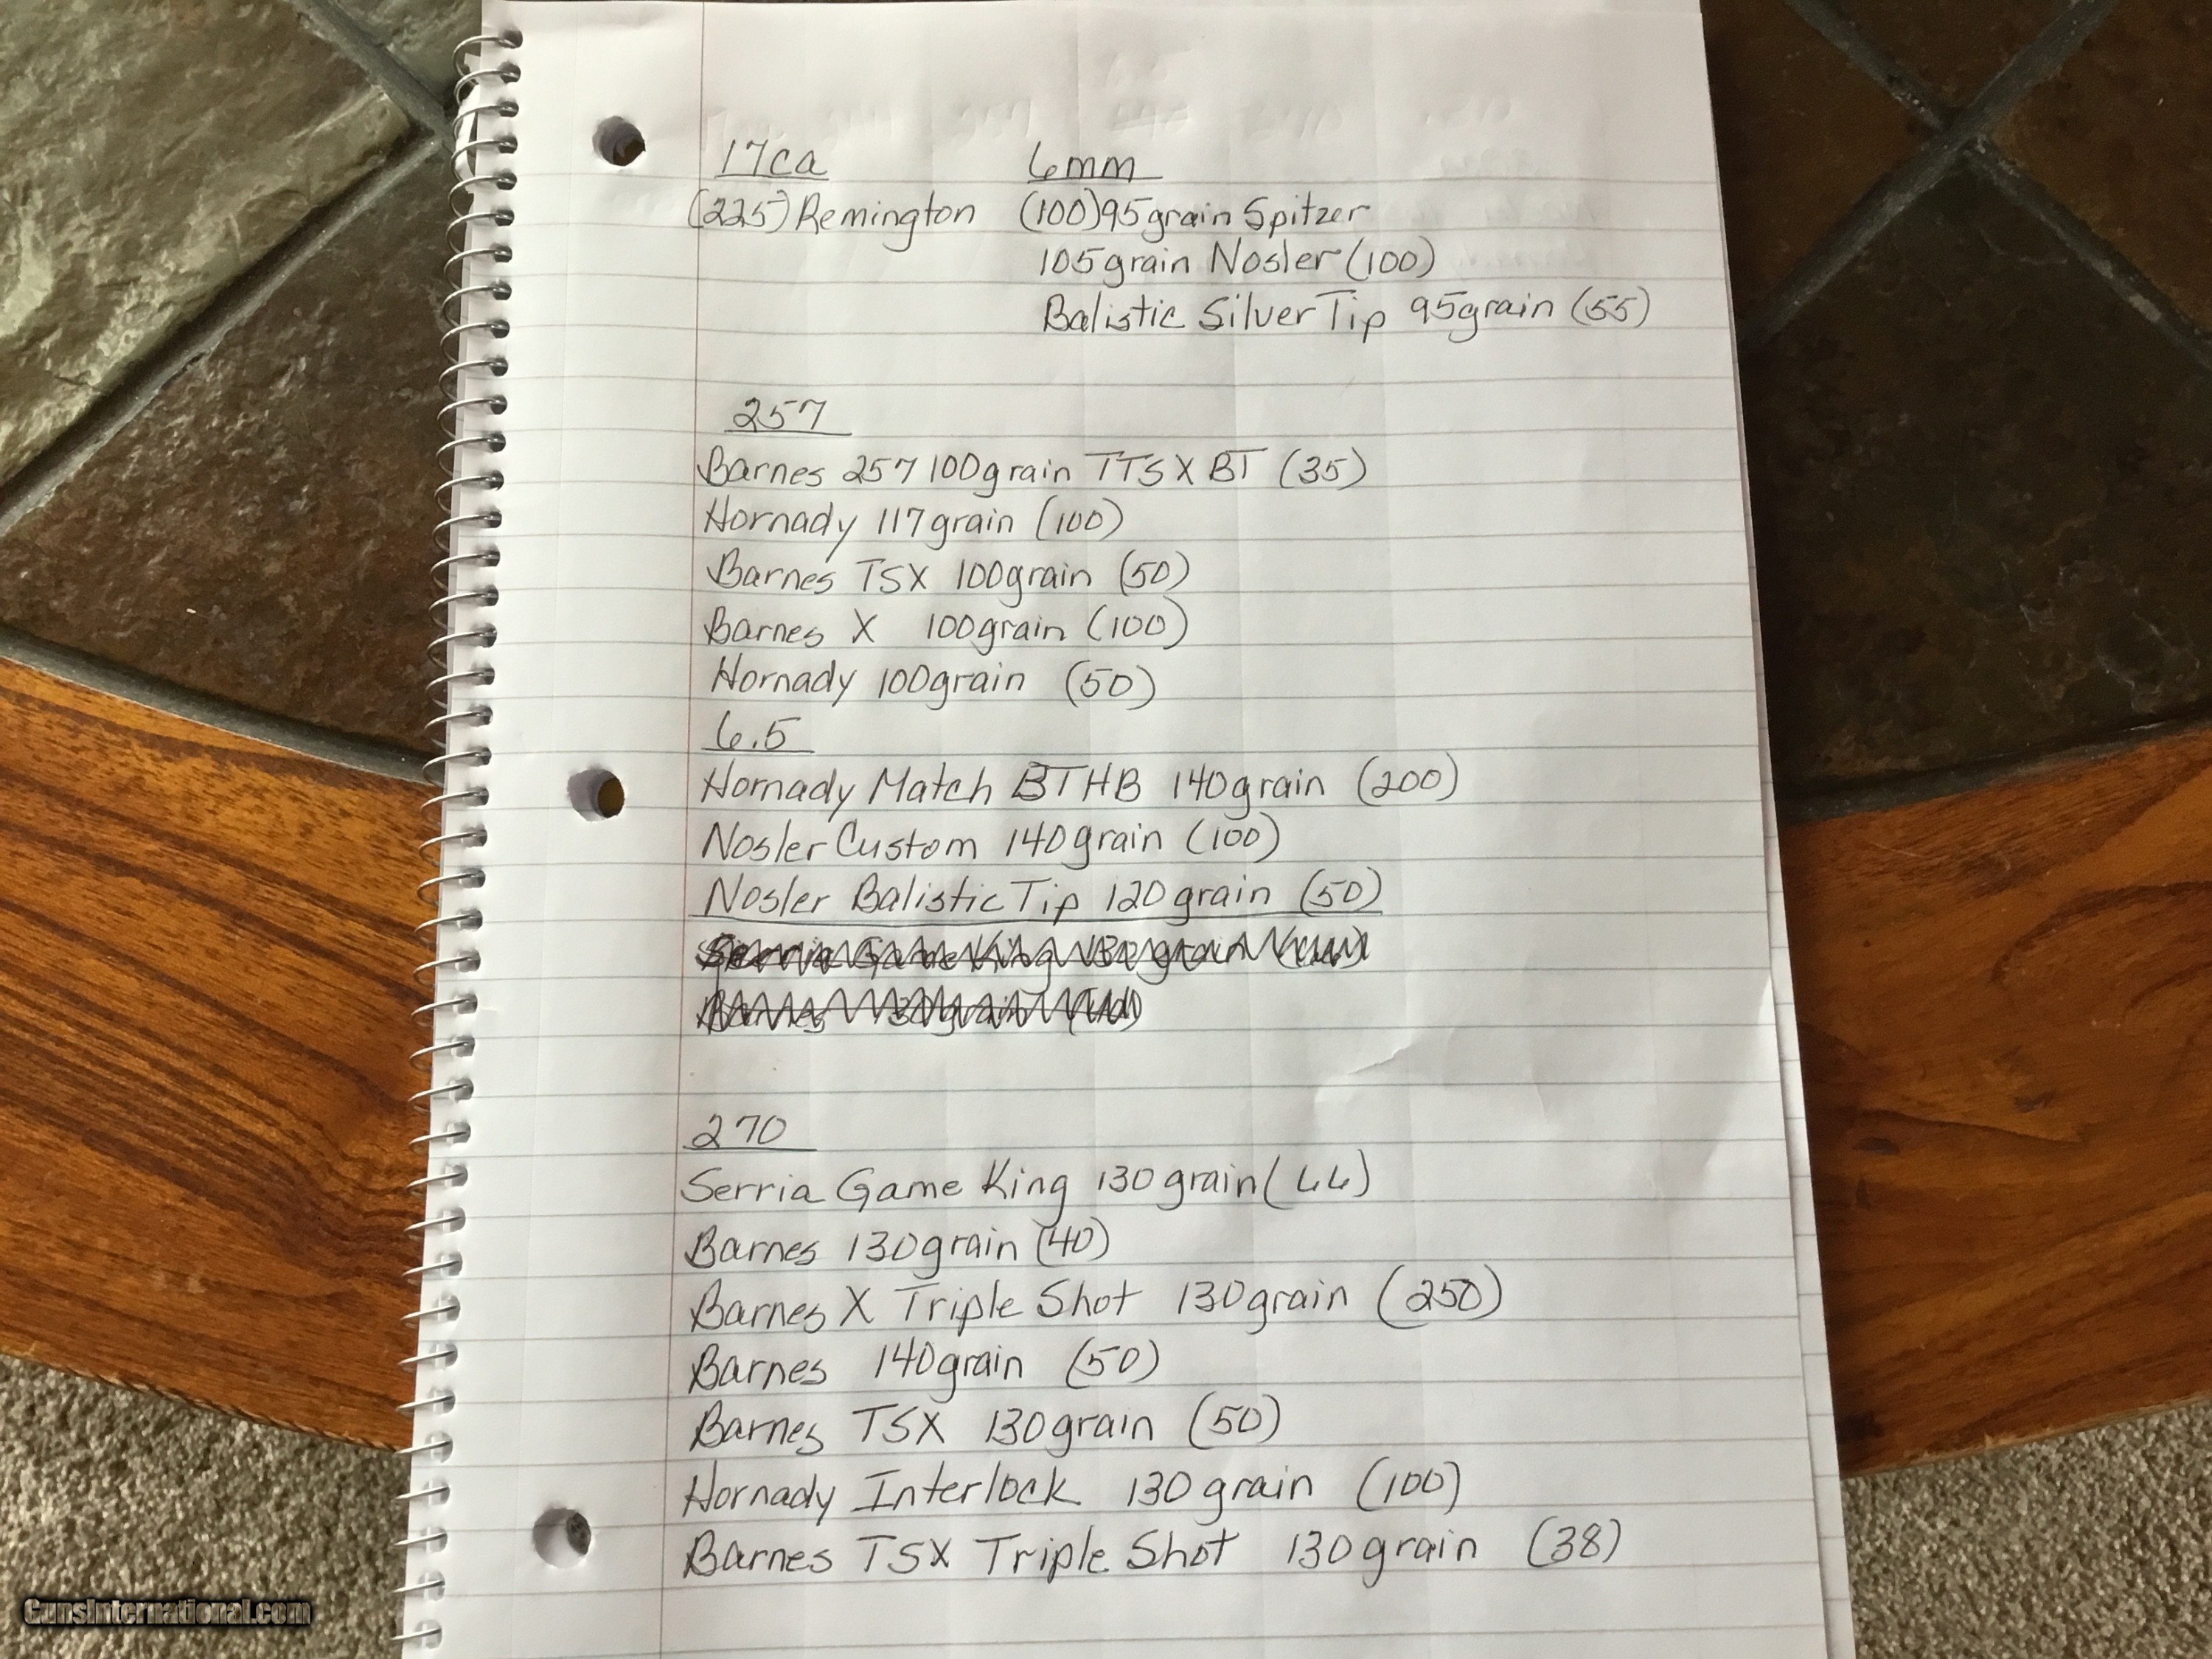 17ca 6mm
(225) Remington (100) 95grain Spitzer
105grain Nosler (100)
Balistic Silver Tip 95grain (55)
257
Barnes 257 100grain TTSX BT (35)
Hornady 117grain (100)
Barnes TSX 100grain (50)
Barnes X 100grain (100)
Hornady 100grain (50)
6.5
Hornady Match BTHB 140grain (200)
Nosler Custom 140grain (100)
Nosler Balistic Tip 120grain (50)
Serria Game King 130 grain
Barnes 130grain
270
Serria Game King 130 grain (66)
Barnes 130grain (40)
Barnes X Triple Shot 130grain (250)
Barnes 140grain (50)
Barnes TSX 130grain (50)
Hornady Interlock 130 grain (100)
Barnes TSX Triple Shot 130grain (38)
GunsInternational.com